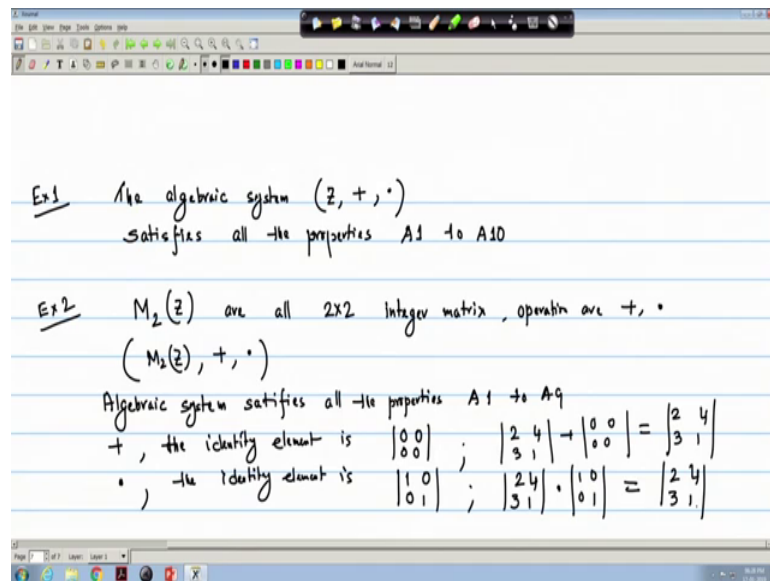 File Edit View Page Tools Options Help
Arial Normal 12
Ex1 The algebraic system (Z, +, ·)
satisfies all the properties A1 to A10
Ex2 M₂(Z) are all 2x2 Integer matrix, operation are +, ·
(M₂(Z), +, ·)
Algebraic system satisfies all the properties A1 to A9
+, the identity element is |0 0 / 0 0| ; |2 4 / 3 1| + |0 0 / 0 0| = |2 4 / 3 1|
·, the identity element is |1 0 / 0 1| ; |2 4 / 3 1| · |1 0 / 0 1| = |2 4 / 3 1|
Page 7 of 7 Layer: Layer 1